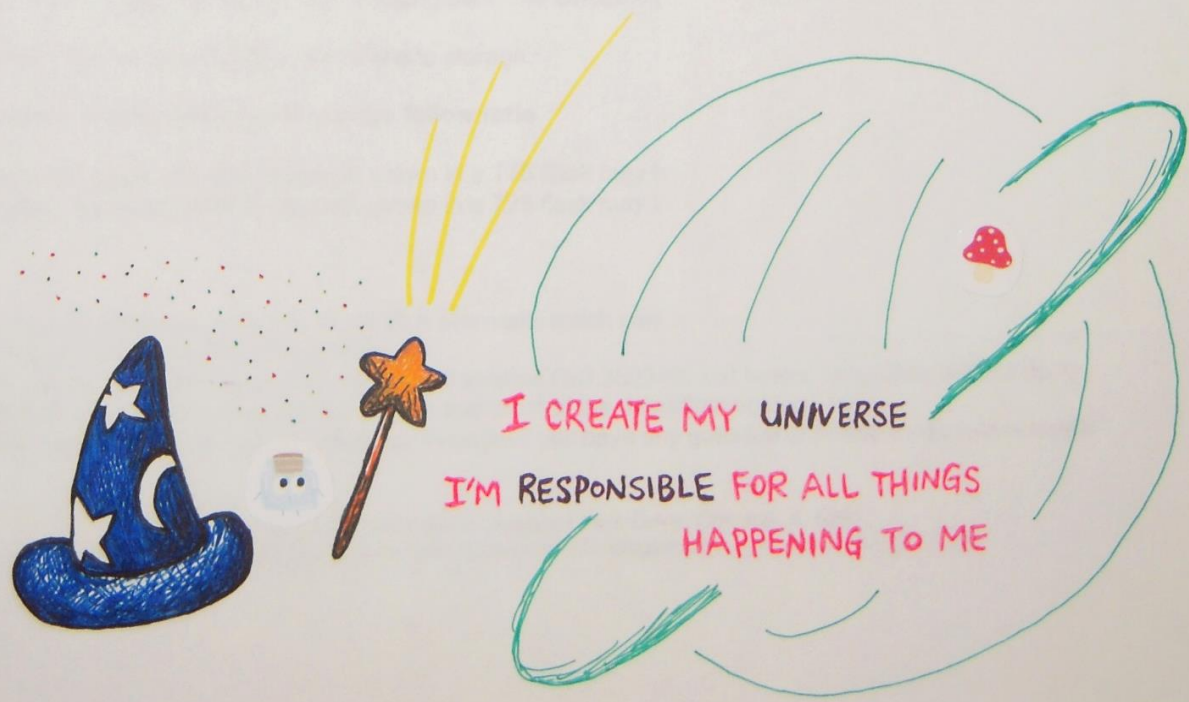 I CREATE MY UNIVERSE
I'M RESPONSIBLE FOR ALL THINGS
HAPPENING TO ME